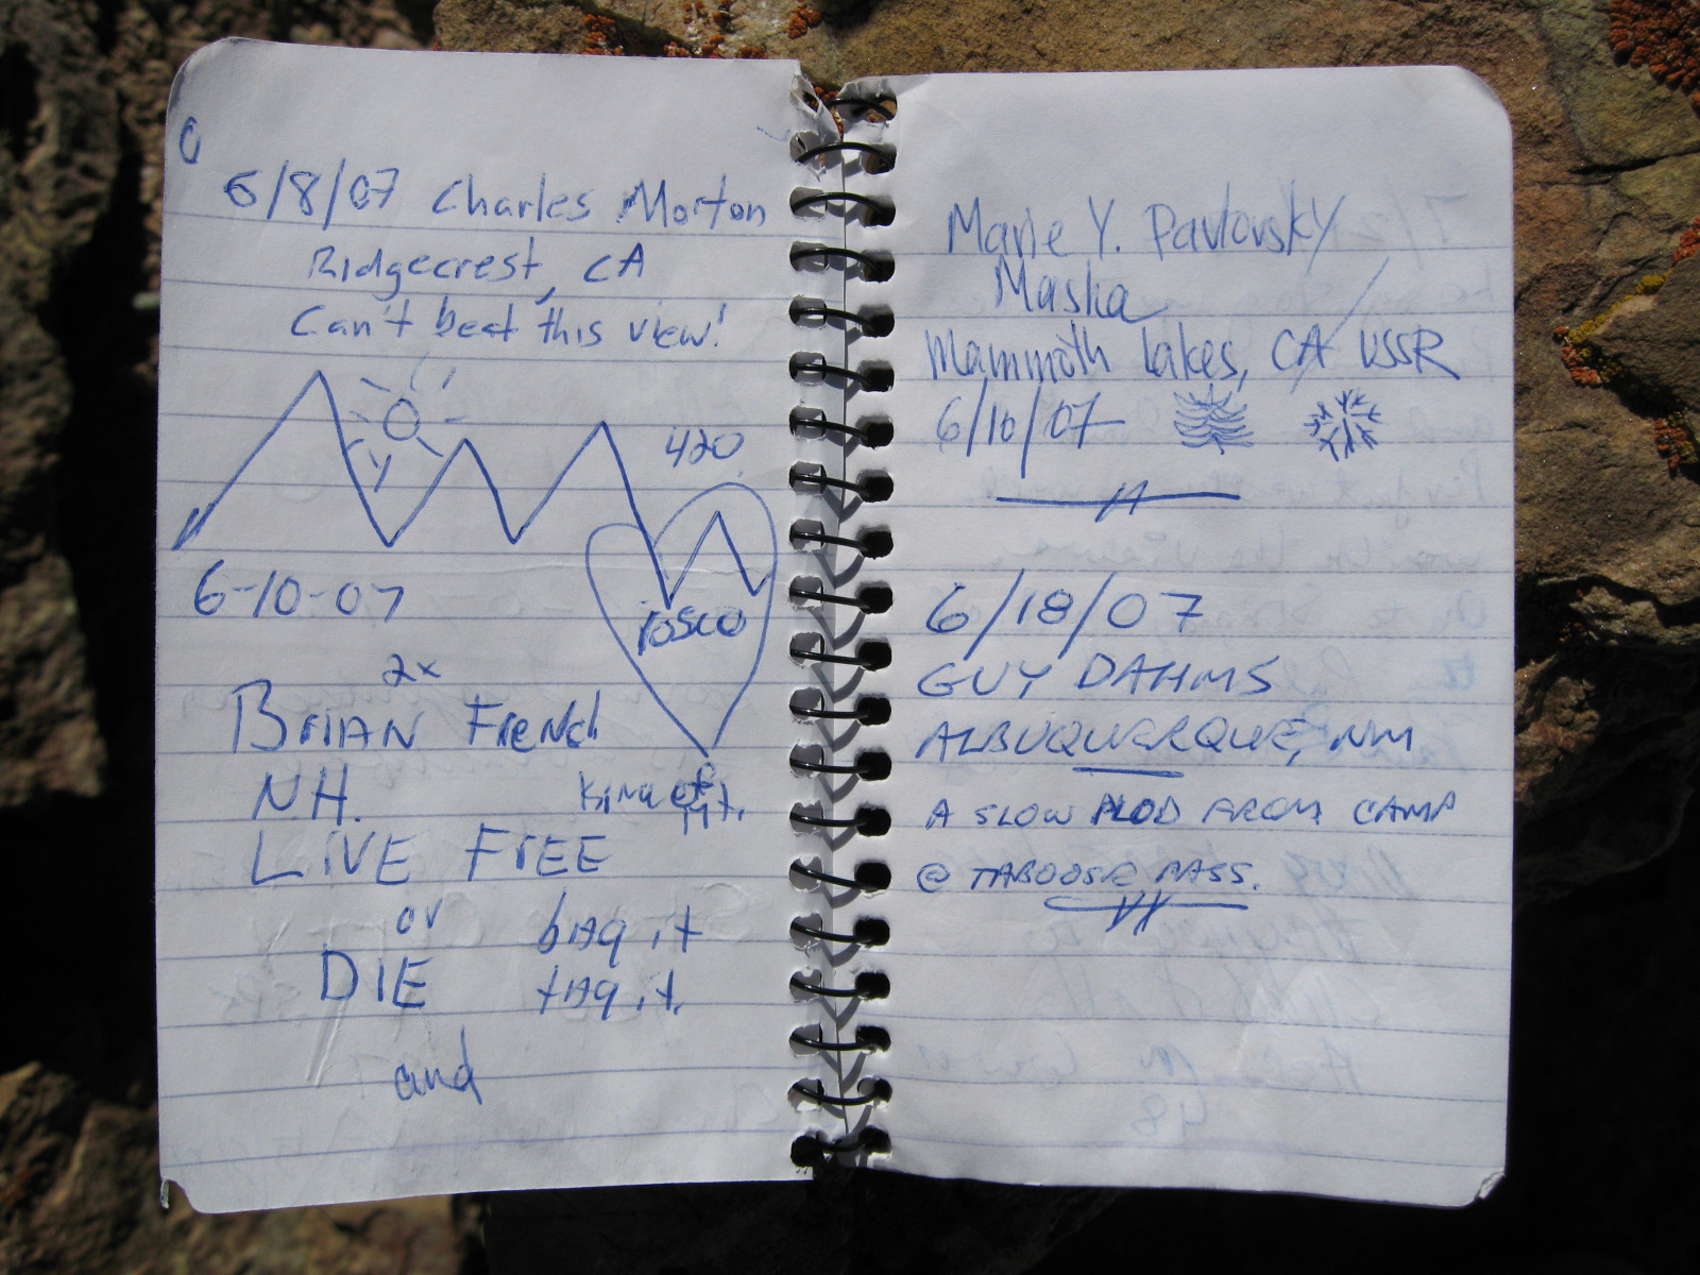 6/8/07 Charles Morton
Ridgecrest, CA
Can't beat this view!
420
rosco
6-10-07
2x
BriAN FreNch
N.H.
KiNg of
Mt.
LiVE FrEE
or
DIE
bAg it
tAg it.
and
Marie Y. Pavlovsky
Masha
Mammoth Lakes, CA USSR
6/10/07
6/18/07
GUY DAHMS
ALBUQUERQUE, NM
A SLOW PLOD FROM CAMP
@ TABOOSE PASS.